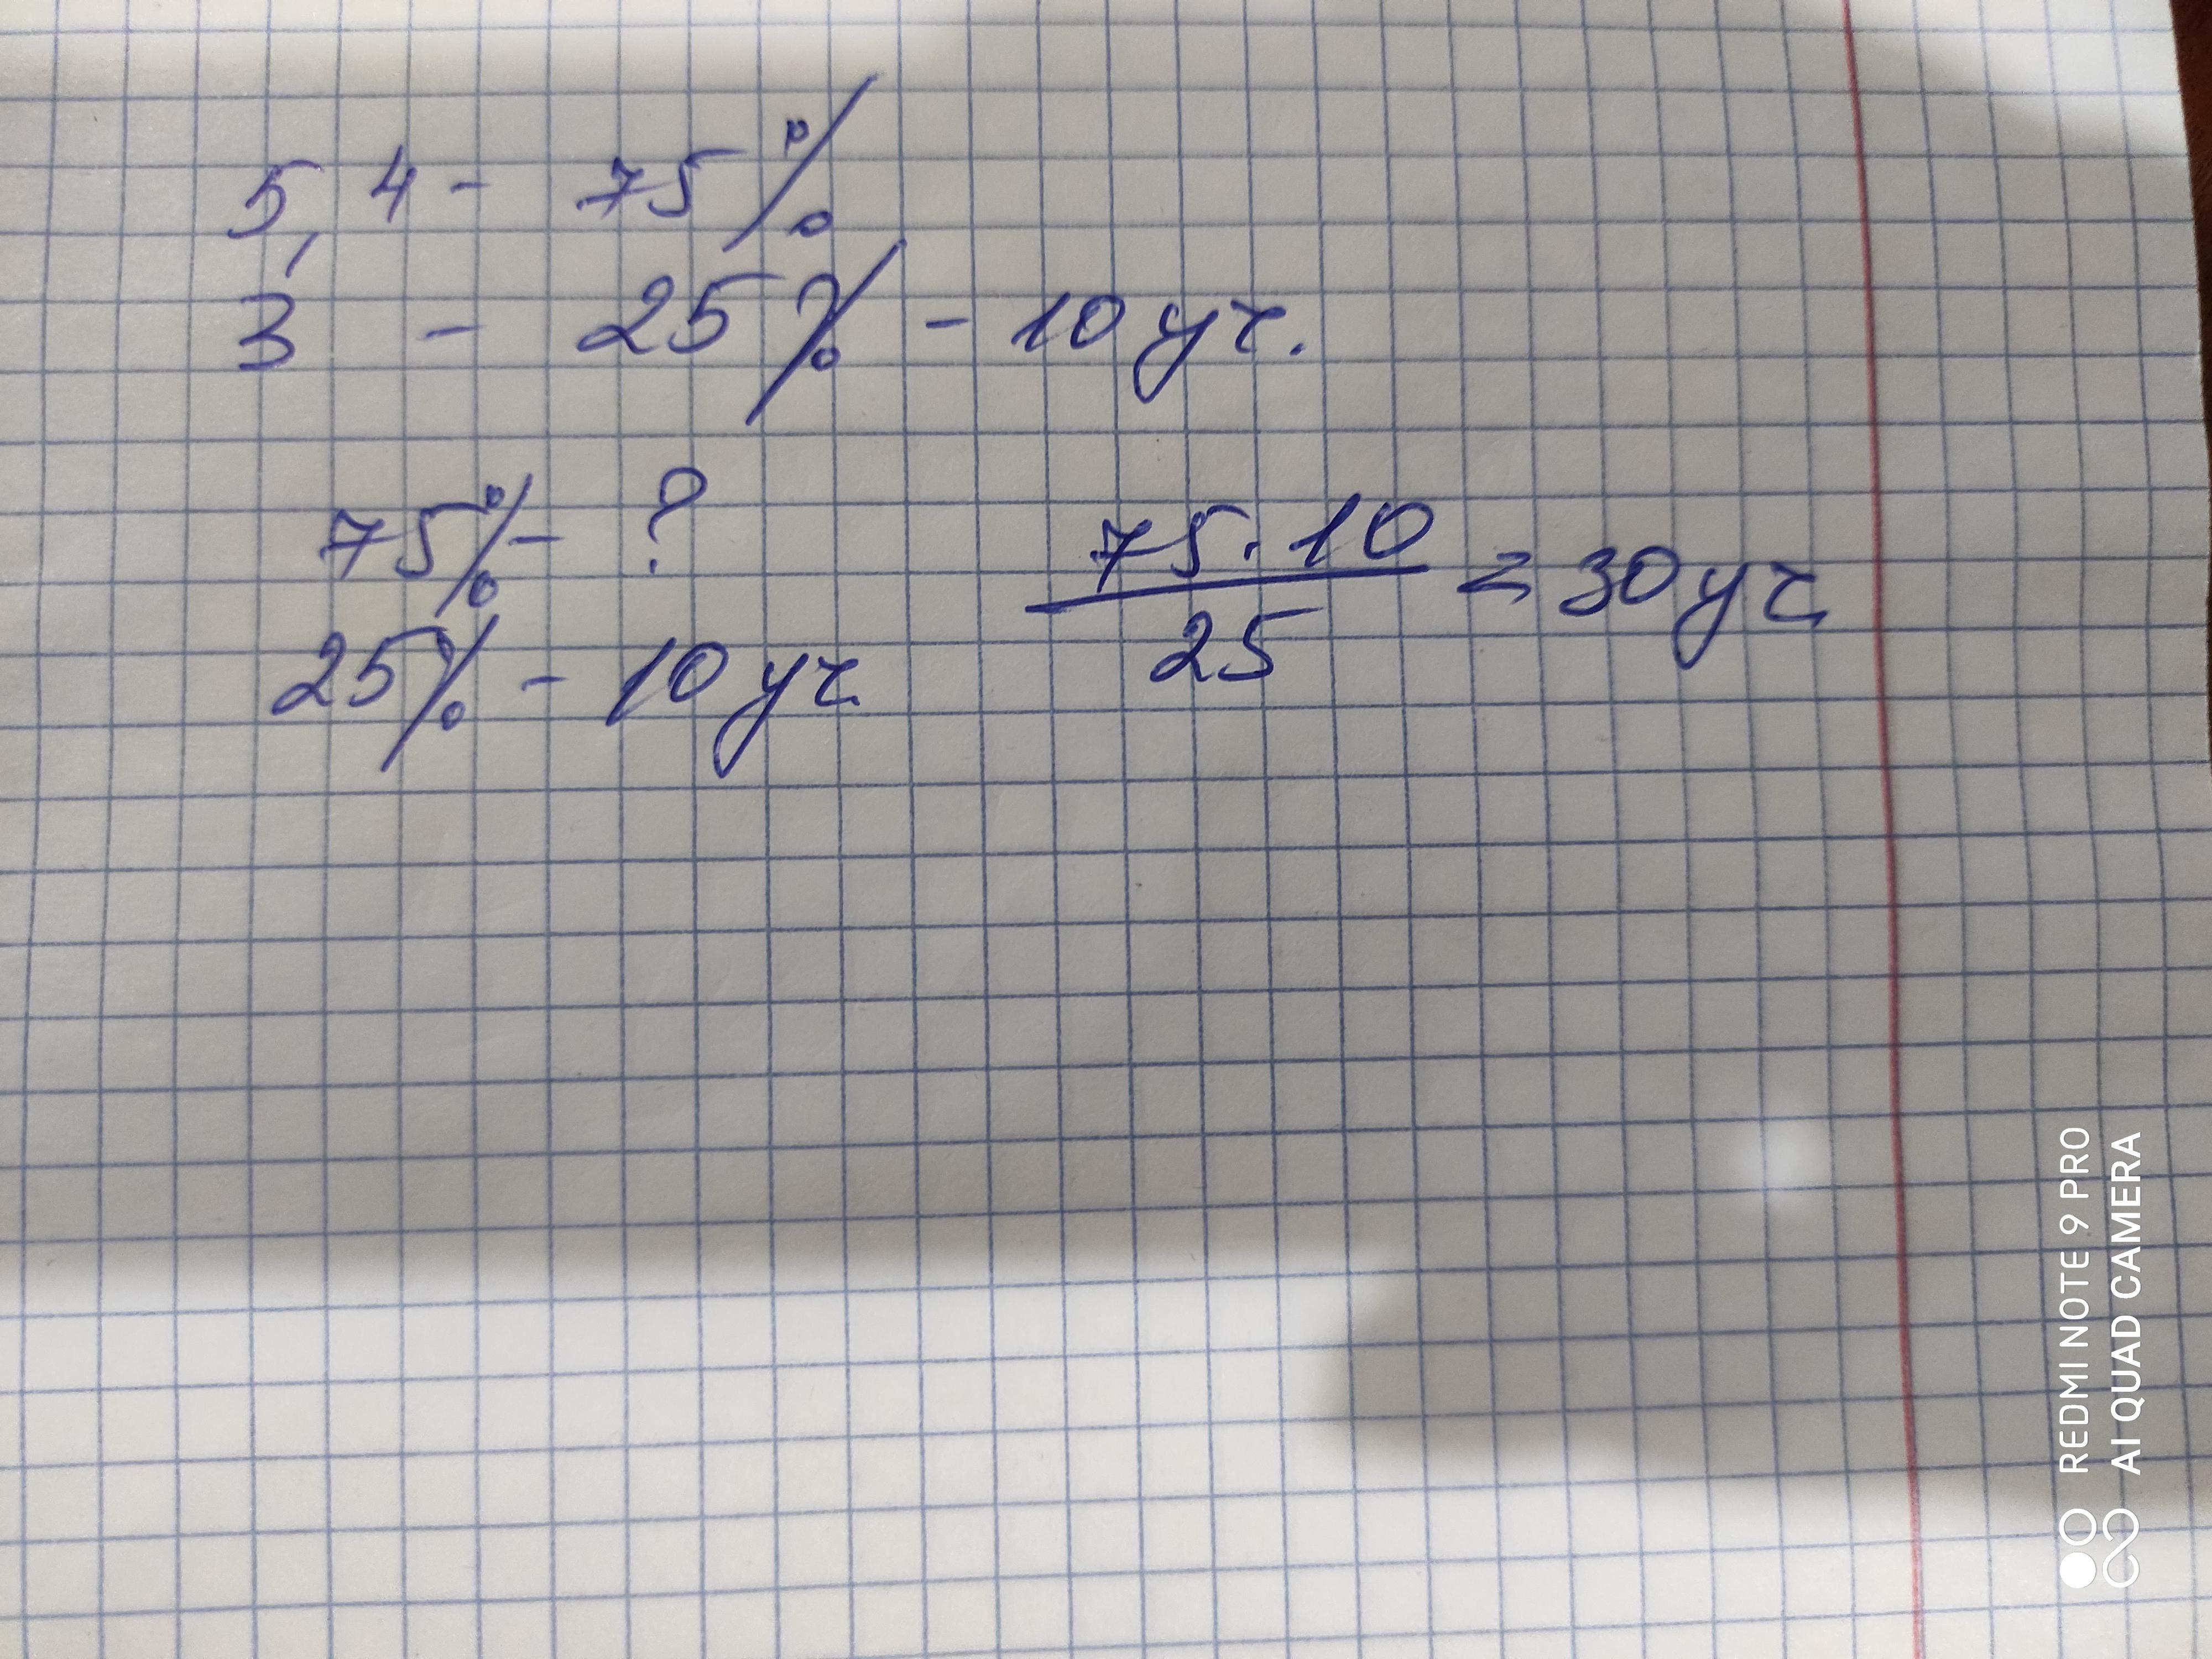 5, 4 - 75%
3 - 25% - 10 уч.
75% - ?
25% - 10 уч
75 · 10
25
= 30 уч
REDMI NOTE 9 PRO
AI QUAD CAMERA